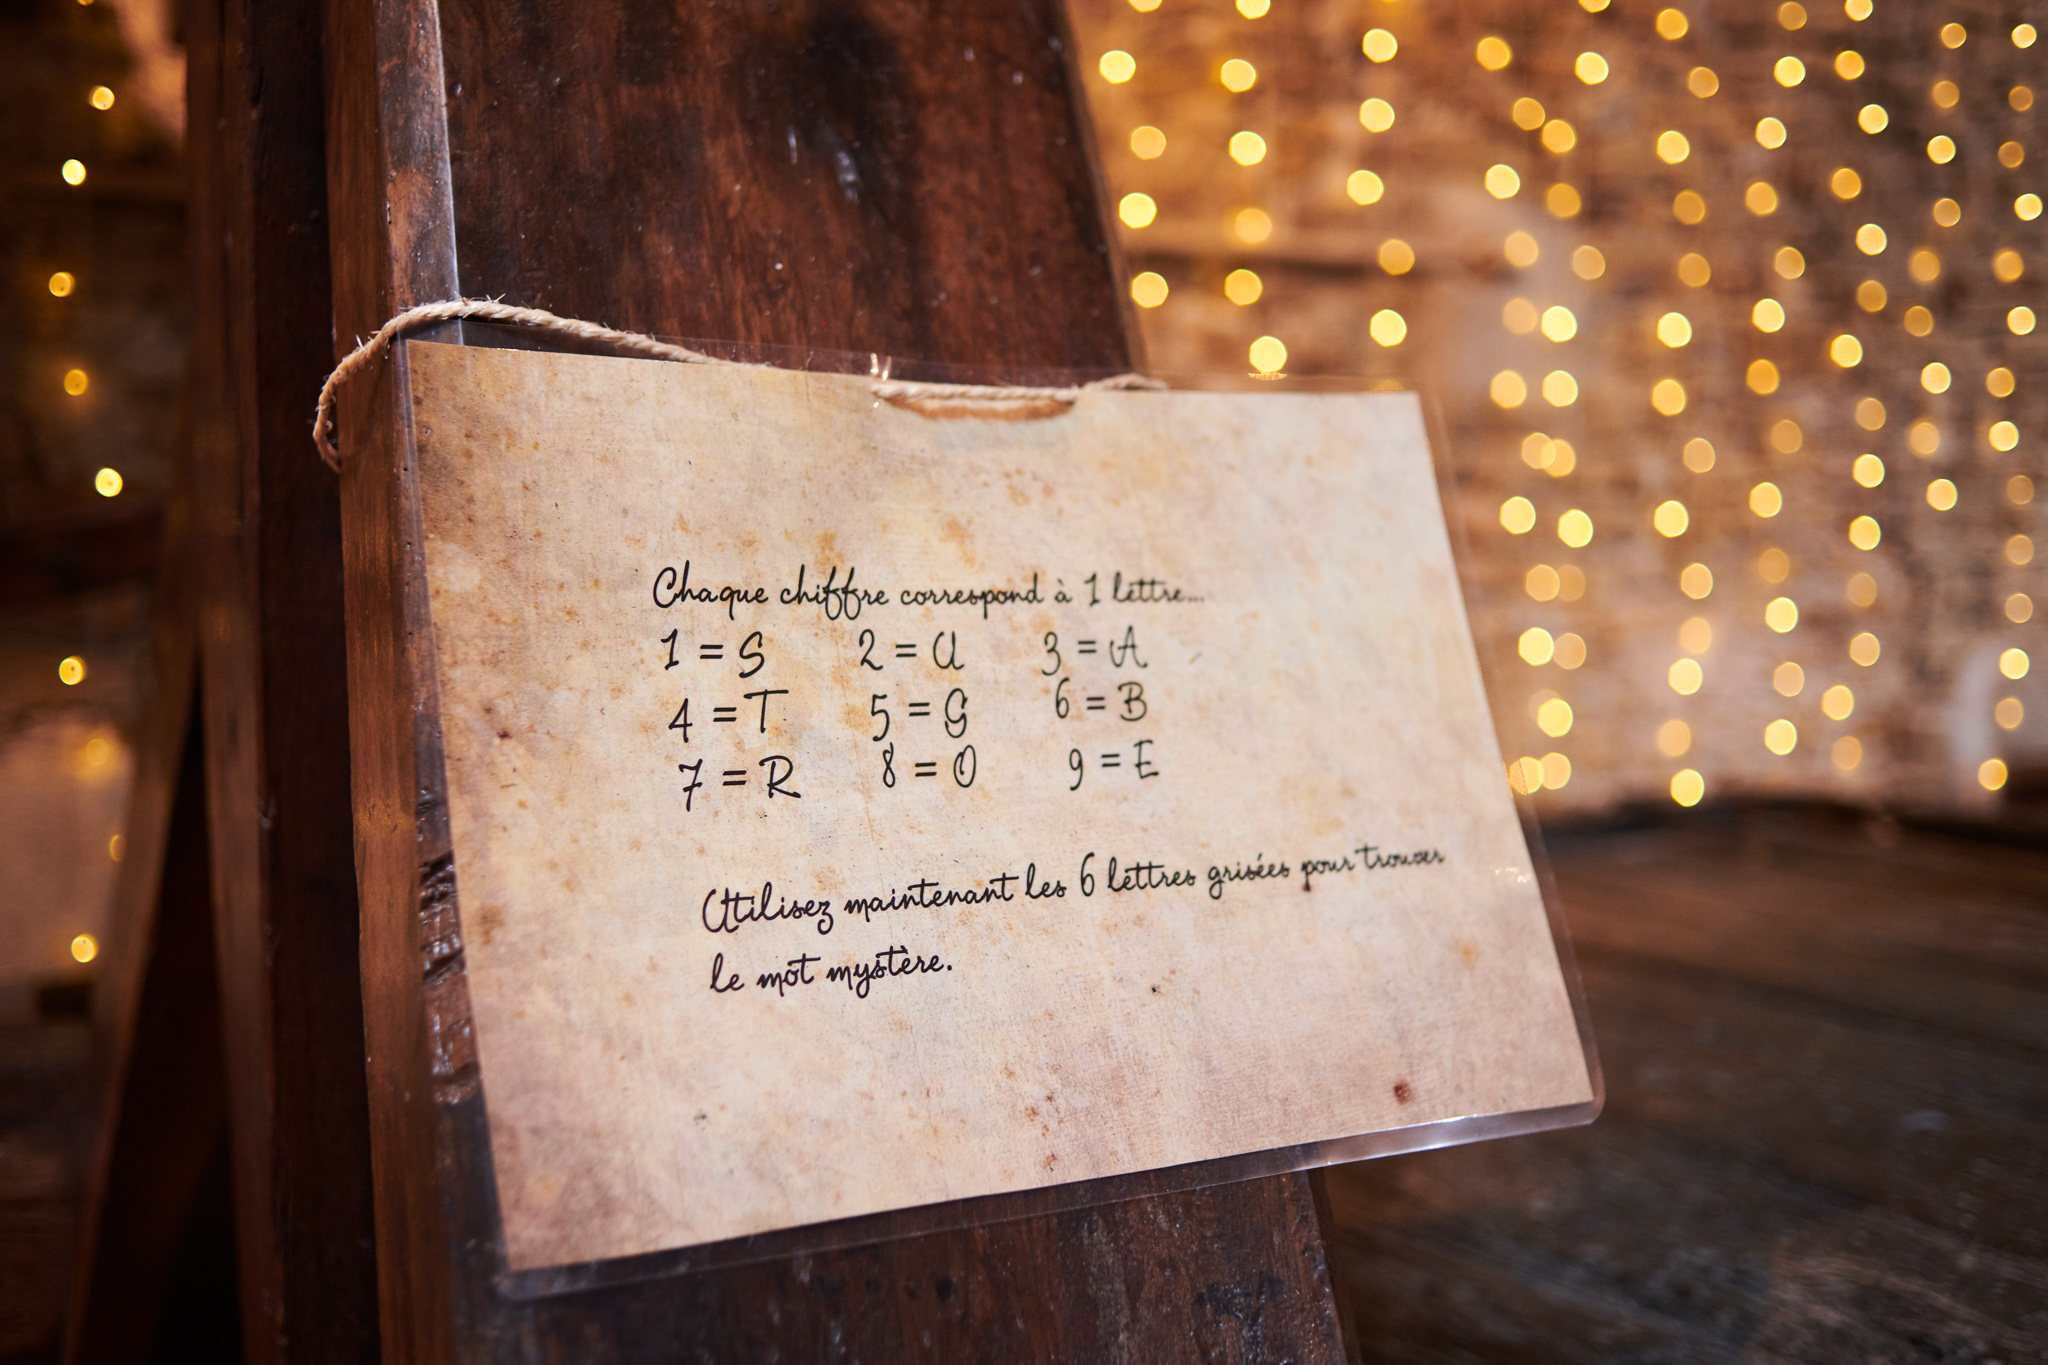 Chaque chiffre correspond à 1 lettre...
1 = S 2 = U 3 = A
4 = T 5 = G 6 = B
7 = R 8 = O 9 = E
Utilisez maintenant les 6 lettres grisées pour trouver
le mot mystère.